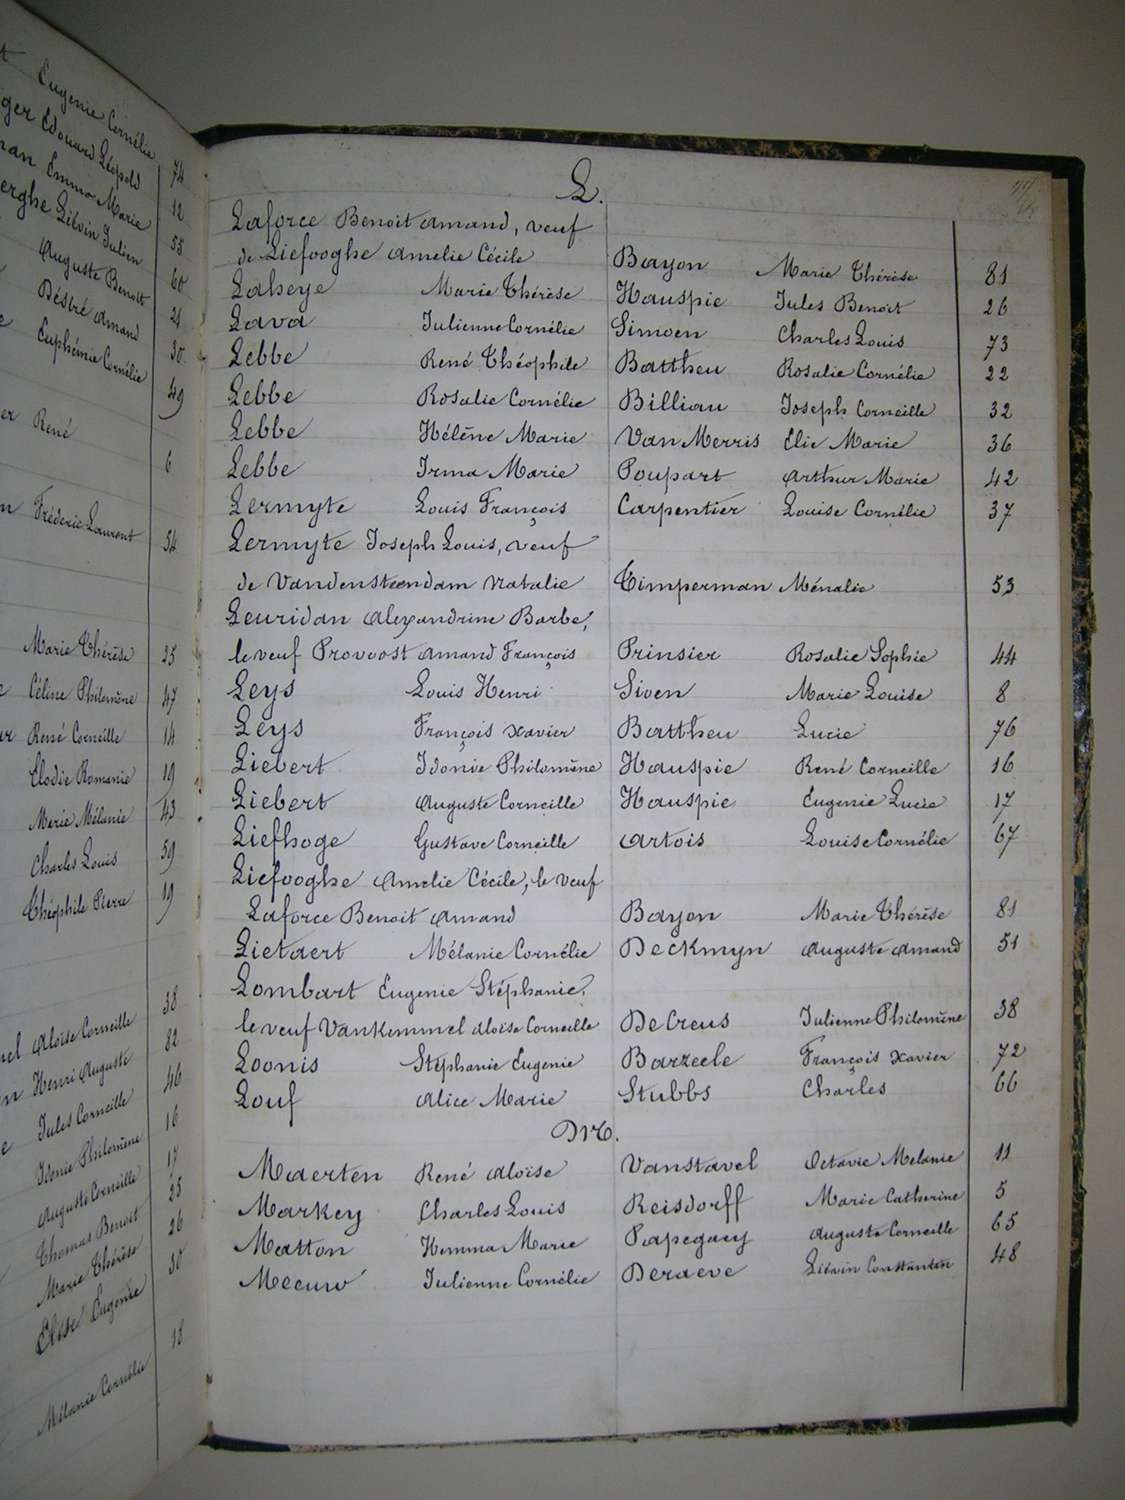 Eugenie Cornélie 74
Edouard Léopold 12
Emma Marie 55
Liévin Julien 60
Auguste Benoit 21
Désiré Amand 30
Euphémie Cornélie 49
René 6
Fréderic Laurent 54
Marie Thérèse 25
Céline Philomène 47
René Corneille 14
Elodie Romanie 19
Marie Mélanie 43
Charles Louis 59
Théophile Pierre 19
Aloïse Corneille 38
Henri Auguste 82
Jules Corneille 46
Idonie Philomène 16
Auguste Corneille 17
Thomas Benoit 25
Marie Thérèse 26
Elise Eugenie 30
Mélanie Cornélie 18
L.
Laforce Benoit Amand, veuf
de Liefooghe Amelie Cécile Bayon Marie Thérèse 81
Laheye Marie Thérèse Hauspie Jules Benoit 26
Lava Julienne Cornélie Simoen Charles Louis 73
Lebbe René Théophile Battheu Rosalie Cornélie 22
Lebbe Rosalie Cornélie Billiau Joseph Corneille 32
Lebbe Hélène Marie Van Merris Elie Marie 36
Lebbe Irma Marie Poupart Arthur Marie 42
Lermyte Louis François Carpentier Louise Cornélie 37
Lermyte Joseph Louis, veuf
de Vandensteendam Natalie Timperman Ménalie 53
Leuridan Alexandrine Barbe,
le veuf Provoost Amand François Prinsier Rosalie Sophie 44
Leys Louis Henri Sioen Marie Louise 8
Leys François Xavier Battheu Lucie 76
Liebert Idonie Philomène Hauspie René Corneille 16
Liebert Auguste Corneille Hauspie Eugenie Lucie 17
Liefhoge Gustave Corneille Artois Louise Cornélie 67
Liefooghe Amelie Cécile, le veuf
Laforce Benoit Amand Bayon Marie Thérèse 81
Lietaert Mélanie Cornélie Deckmyn Auguste Amand 51
Lombart Eugenie Stéphanie,
le veuf Vankemmel Aloïse Corneille DeCreus Julienne Philomène 38
Loonis Stéphanie Eugenie Barzeele François Xavier 72
Louf Alice Marie Stubbs Charles 66
M.
Maerten René Aloïse Vanstavel Octavie Melanie 11
Markey Charles Louis Reisdorff Marie Catherine 5
Matton Hemma Marie Papegaey Auguste Corneille 65
Meeuw Julienne Cornélie Deraeve Liévin Constantin 48